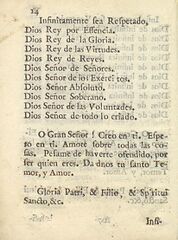 14
Infinitamente sea Respetado,
Dios Rey por Essencia.
Dios Rey de la Gloria.
Dios Rey de las Virtudes.
Dios Rey de Reyes.
Dios Señor de Señores.
Dios Señor de los Exercitos.
Dios Señor Absoluto.
Dios Señor Soberano.
Dios Señor de las Voluntades.
Dios Señor de todo lo criado.
O Gran Señor! Creo en ti. Espe-
ro en ti. Amote sobre todas las co-
sas. Pesame de haverte ofendido, por
ser quien eres. Danos tu santo Te-
mor, y Amor.
Gloria Patri, & Filio, & Spiritui
Sancto, &c.
Infi-